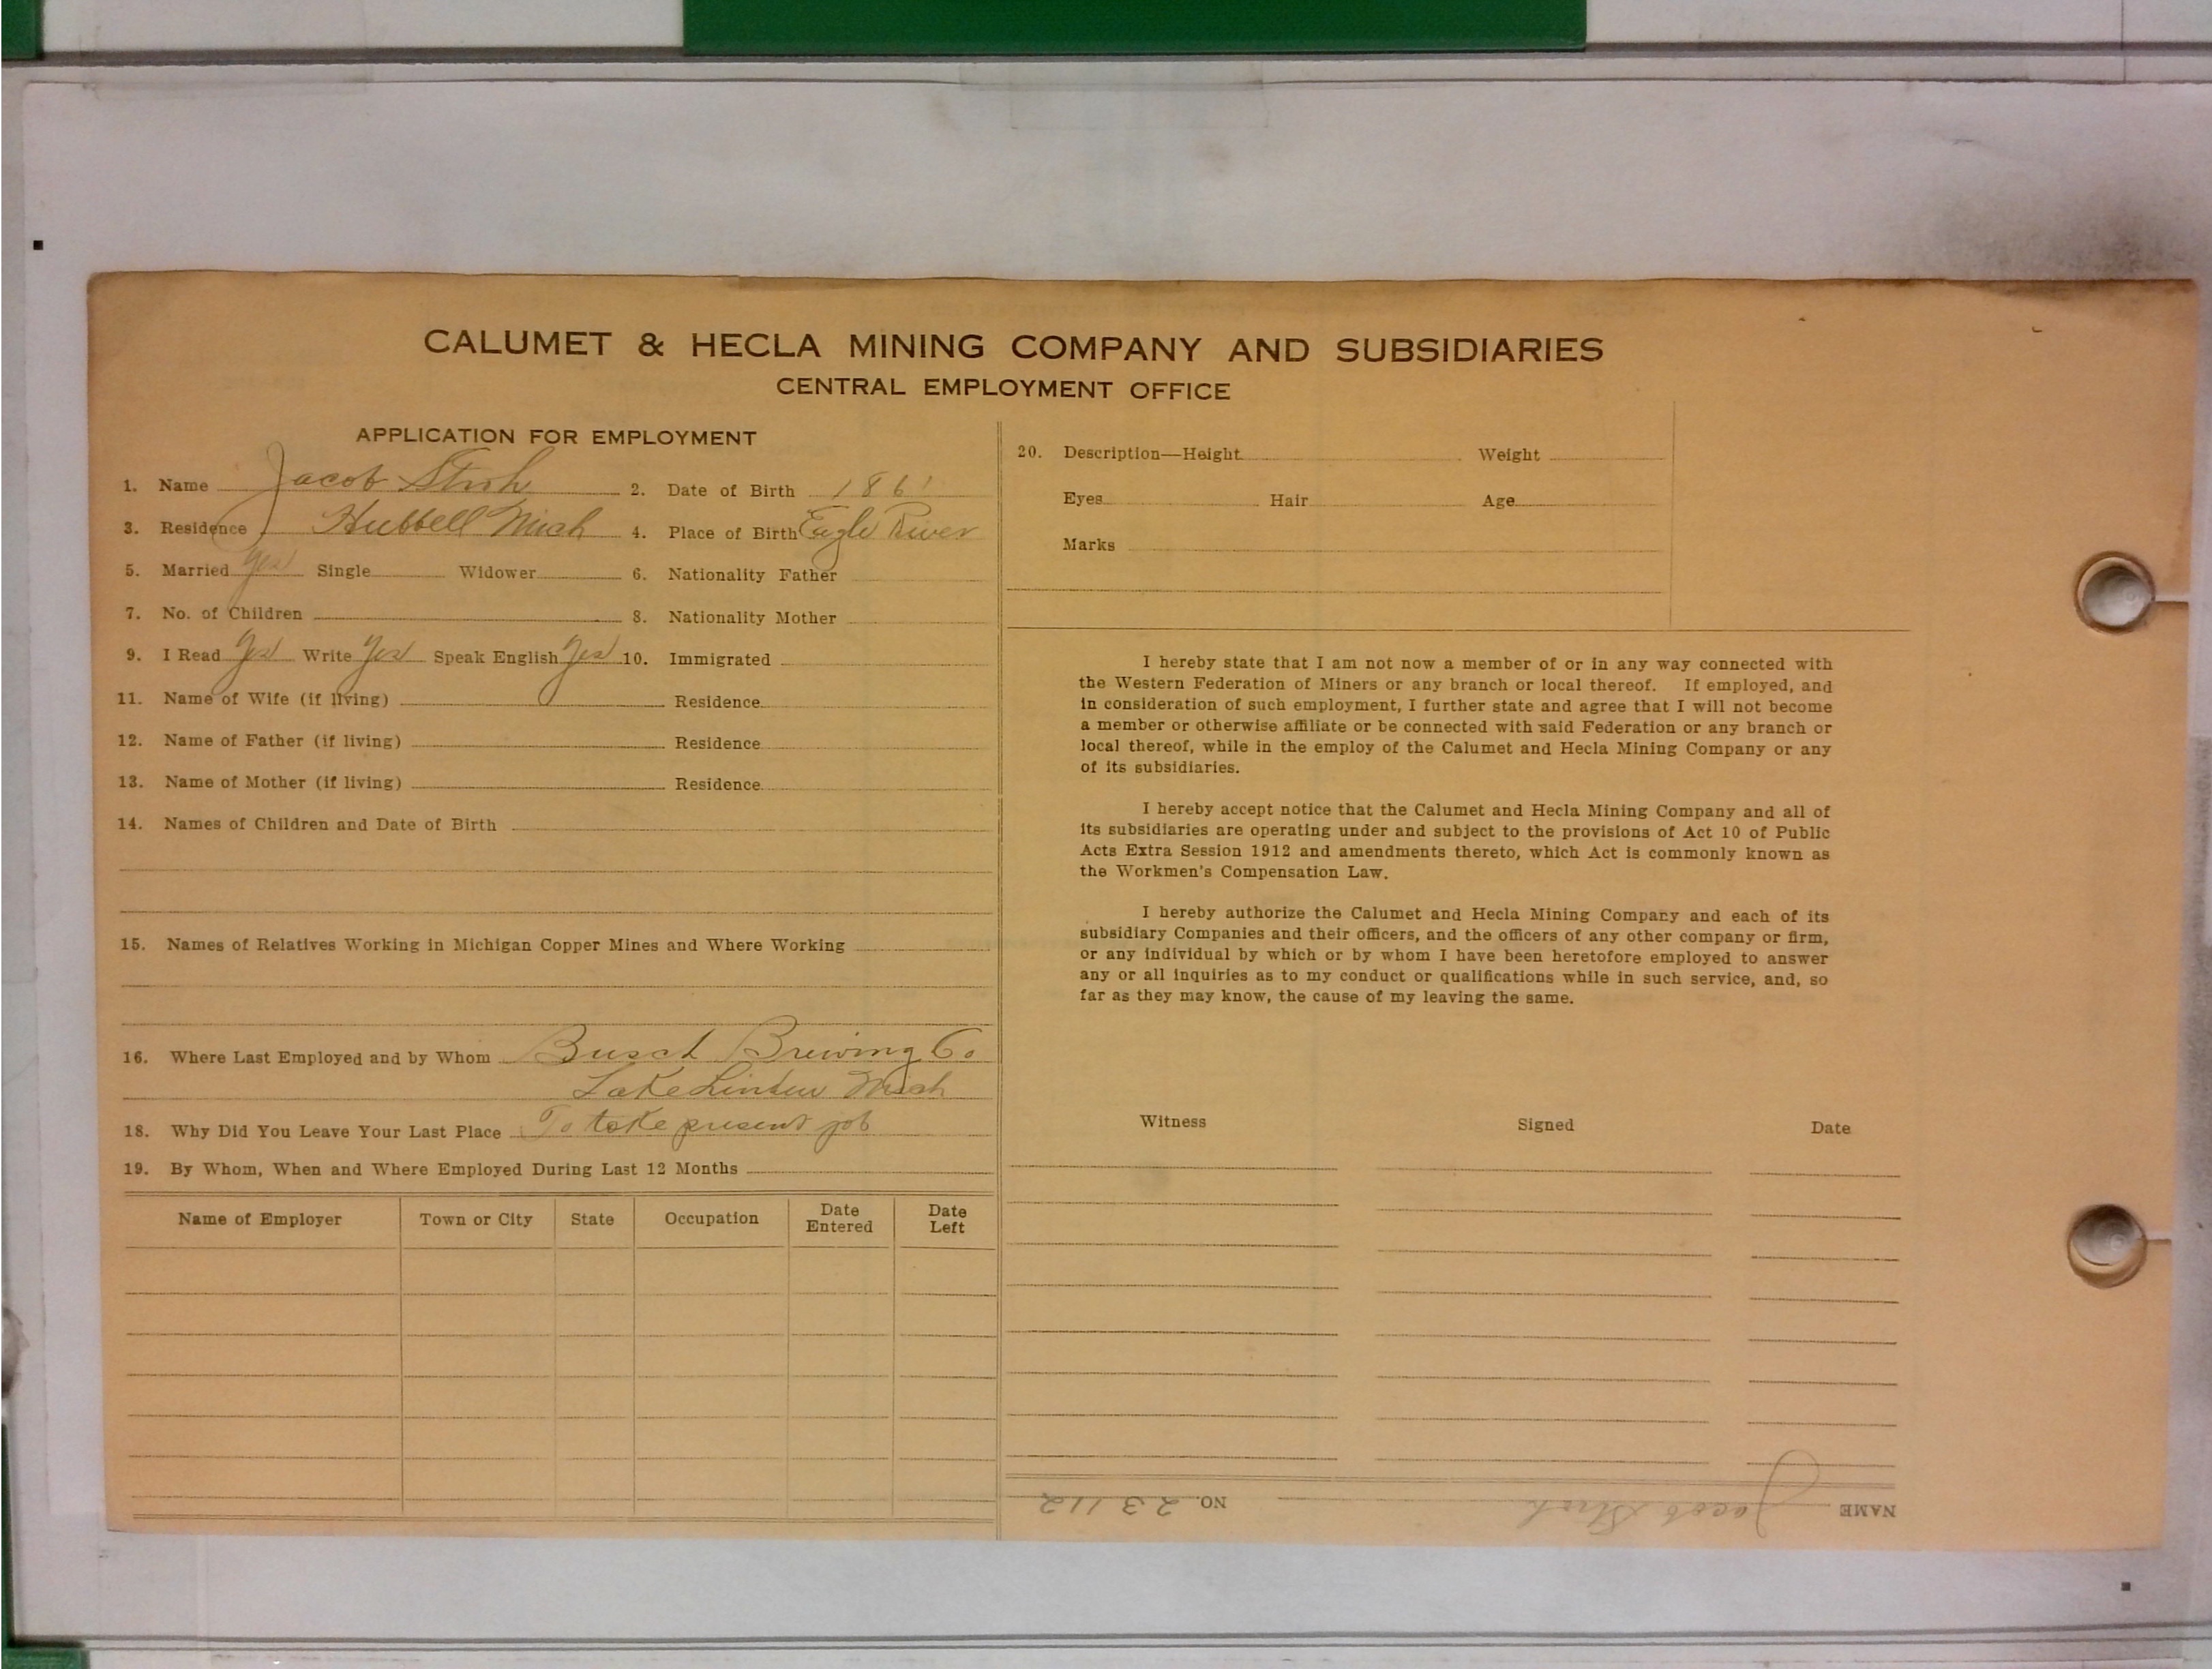 CALUMET & HECLA MINING COMPANY AND SUBSIDIARIES
CENTRAL EMPLOYMENT OFFICE
APPLICATION FOR EMPLOYMENT
1. Name Jacob Stroh 2. Date of Birth 1861
3. Residence Hubbell Mich 4. Place of Birth Eagle River
5. Married Yes Single Widower 6. Nationality Father
7. No. of Children 8. Nationality Mother
9. I Read Yes Write Yes Speak English Yes 10. Immigrated
11. Name of Wife (if living) Residence
12. Name of Father (if living) Residence
13. Name of Mother (if living) Residence
14. Names of Children and Date of Birth
15. Names of Relatives Working in Michigan Copper Mines and Where Working
16. Where Last Employed and by Whom Busch Brewing Co
Lake Linden Mich
18. Why Did You Leave Your Last Place To take present job
19. By Whom, When and Where Employed During Last 12 Months
Name of Employer Town or City State Occupation Date Entered Date Left
20. Description—Height Weight
Eyes Hair Age
Marks
I hereby state that I am not now a member of or in any way connected with
the Western Federation of Miners or any branch or local thereof. If employed, and
in consideration of such employment, I further state and agree that I will not become
a member or otherwise affiliate or be connected with said Federation or any branch or
local thereof, while in the employ of the Calumet and Hecla Mining Company or any
of its subsidiaries.
I hereby accept notice that the Calumet and Hecla Mining Company and all of
its subsidiaries are operating under and subject to the provisions of Act 10 of Public
Acts Extra Session 1912 and amendments thereto, which Act is commonly known as
the Workmen's Compensation Law.
I hereby authorize the Calumet and Hecla Mining Company and each of its
subsidiary Companies and their officers, and the officers of any other company or firm,
or any individual by which or by whom I have been heretofore employed to answer
any or all inquiries as to my conduct or qualifications while in such service, and, so
far as they may know, the cause of my leaving the same.
Witness Signed Date
NAME Jacob Stroh NO. 23112